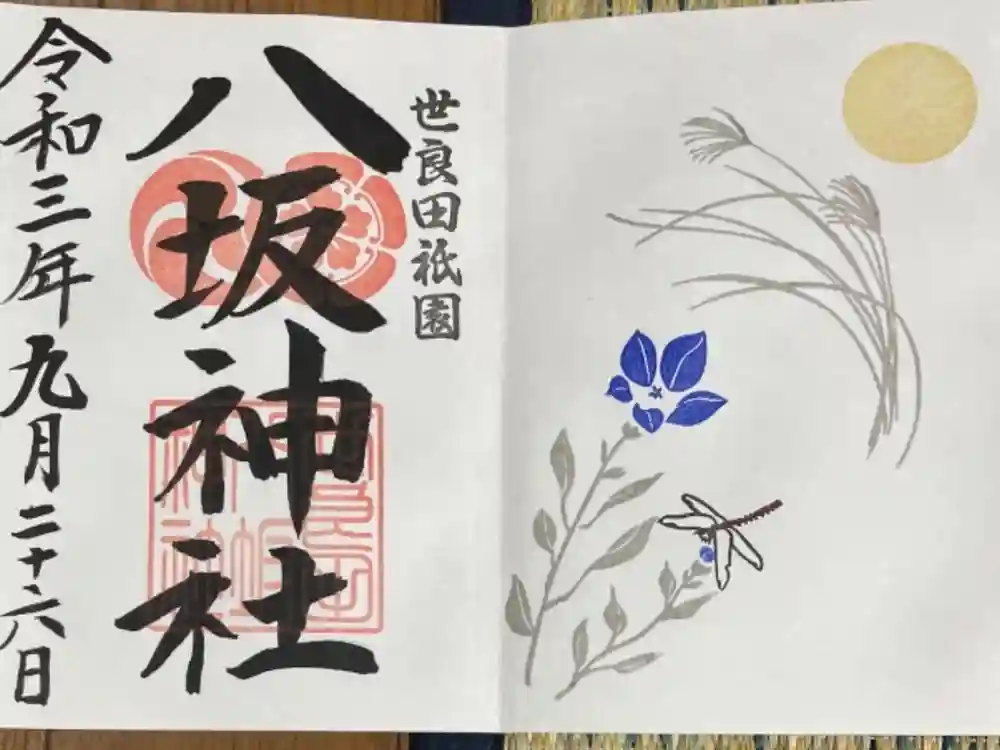 世良田祇園
八坂神社
令和三年九月二十六日